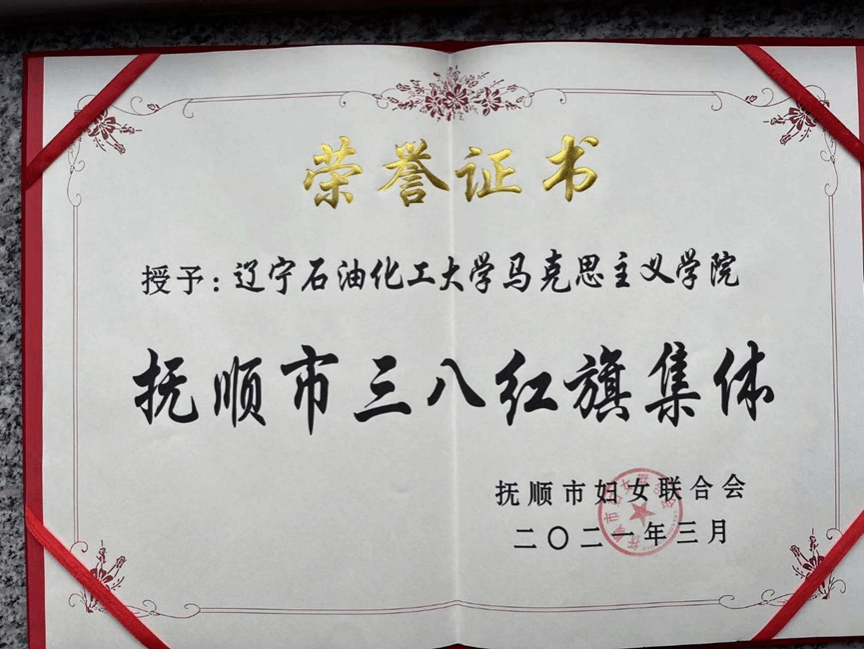 荣誉证书
授予：辽宁石油化工大学马克思主义学院
抚顺市三八红旗集体
抚顺市妇女联合会
二〇二一年三月